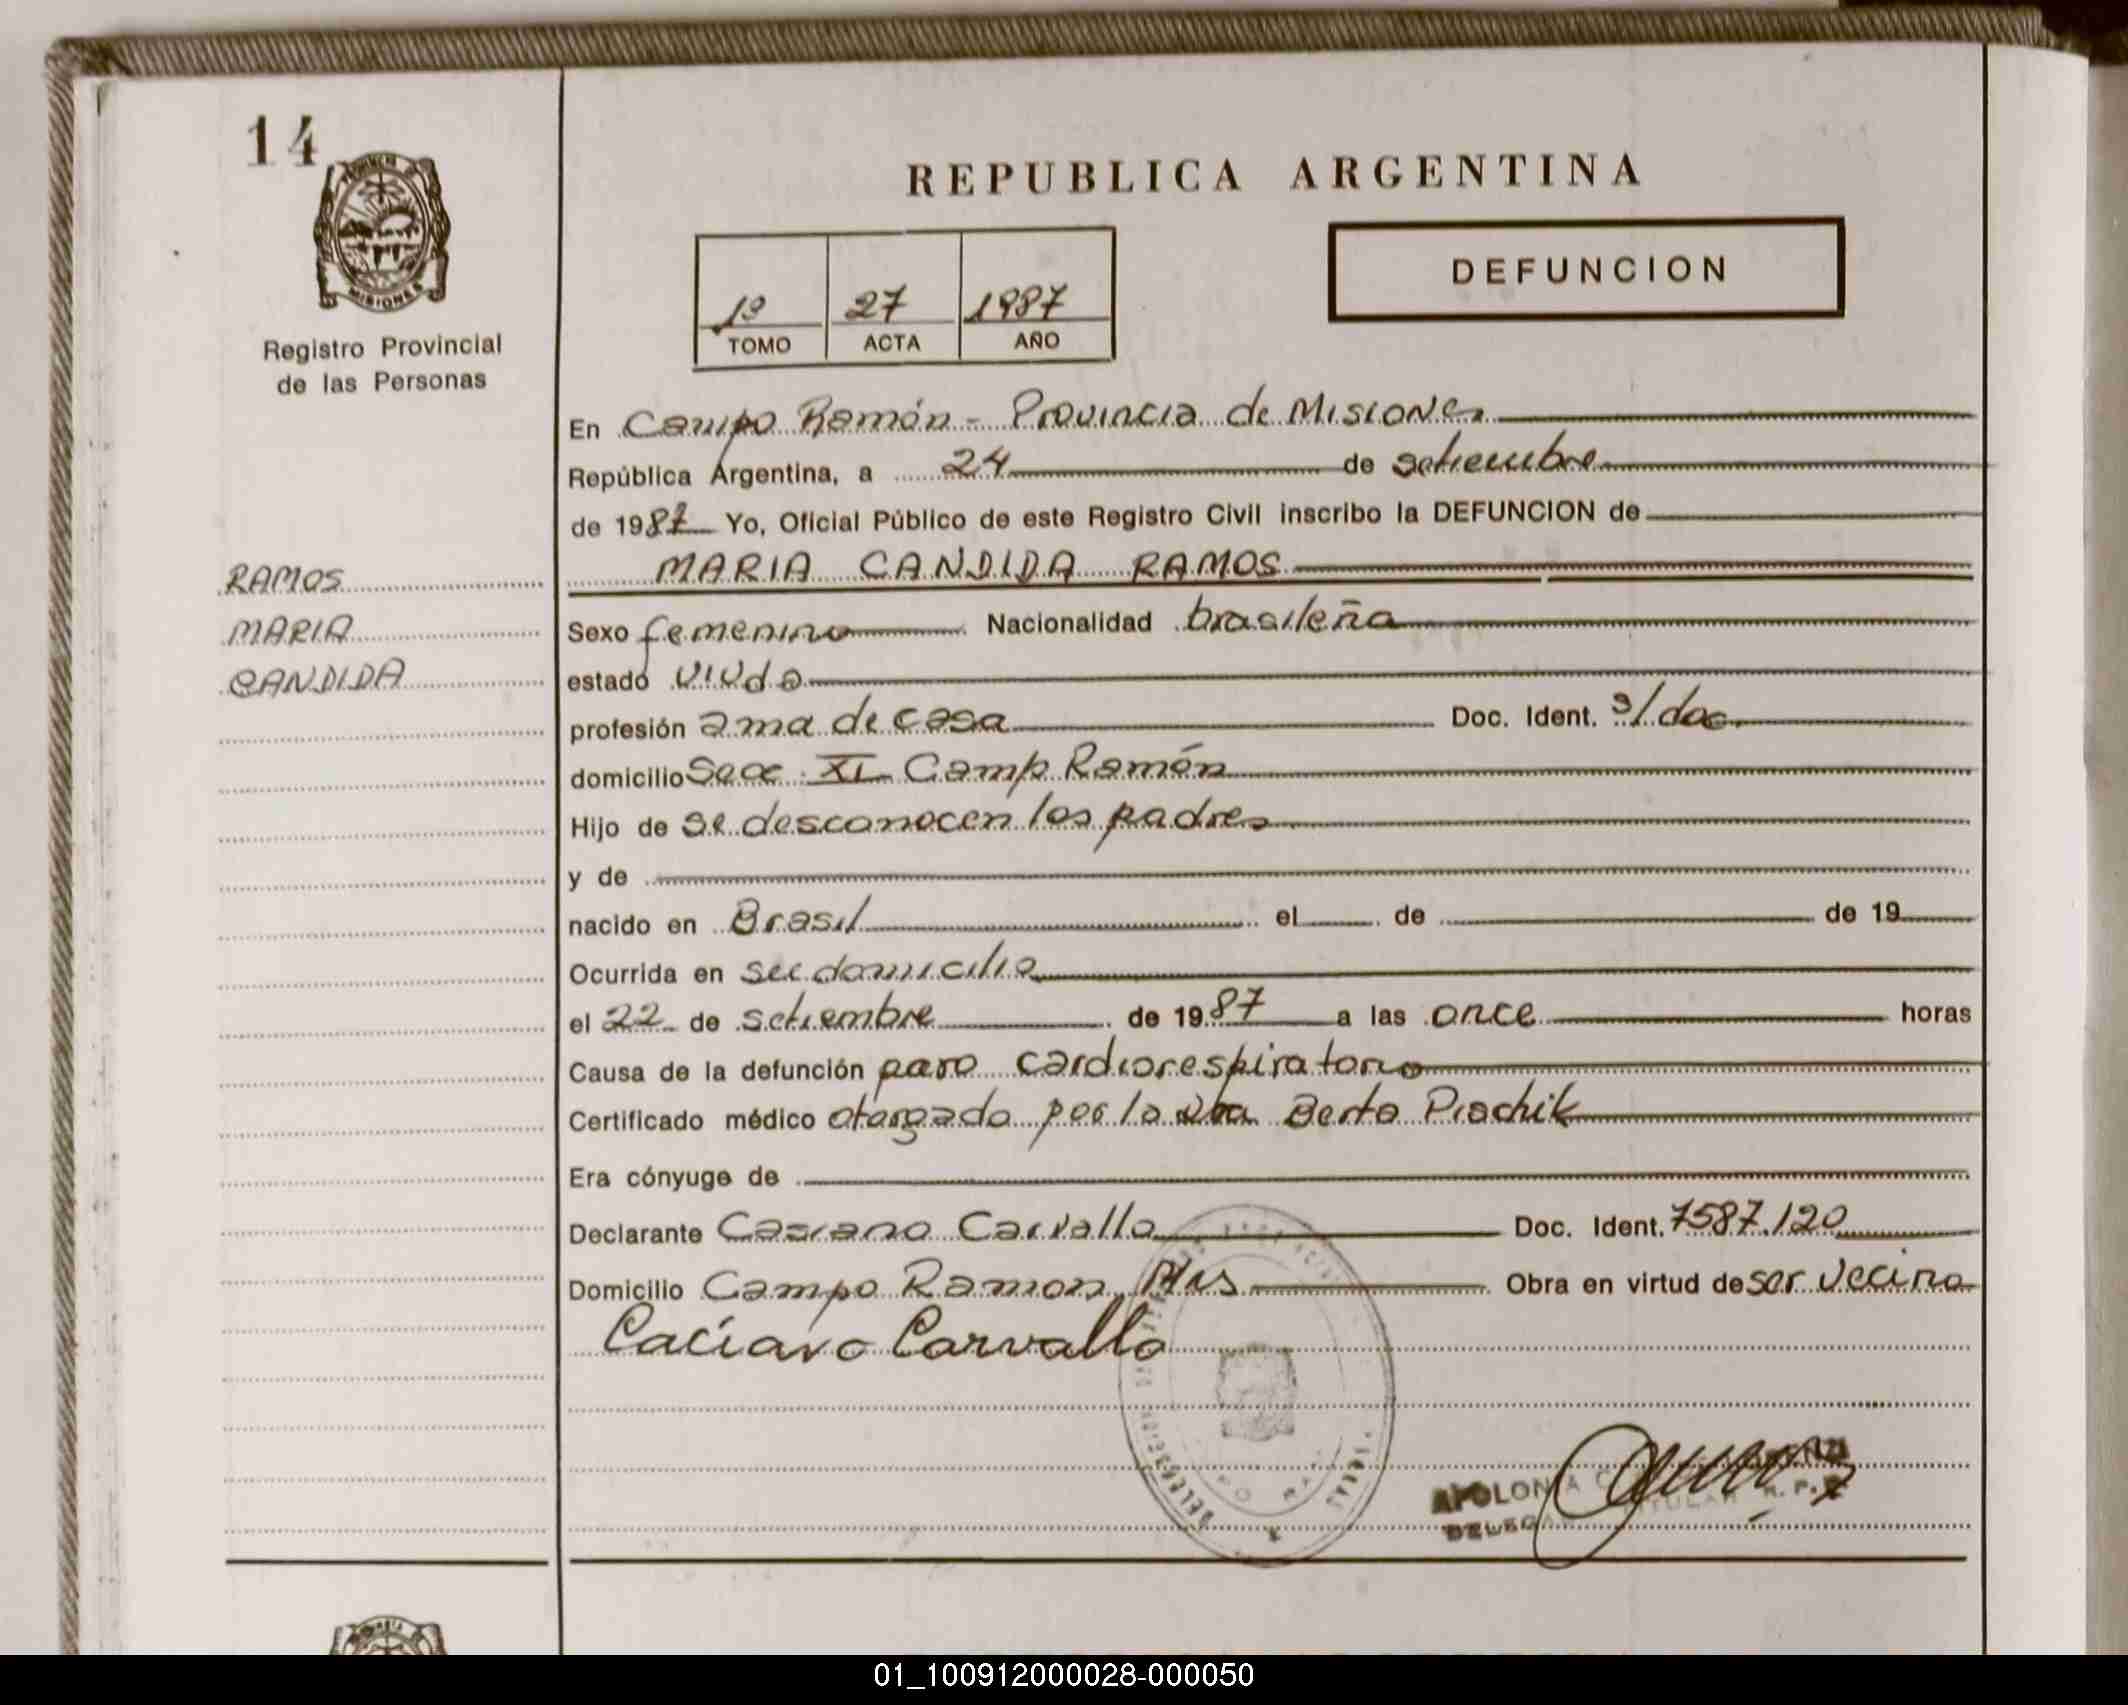 14
MISIONES
Registro Provincial
de las Personas
REPUBLICA ARGENTINA
DEFUNCION
27 1987
TOMO ACTA AÑO
En Campo Ramón - Provincia de Misiones
República Argentina, a 24 de setiembre
de 1987 Yo, Oficial Público de este Registro Civil inscribo la DEFUNCION de
MARIA CANDIDA RAMOS
RAMOS
MARIA
CANDIDA
Sexo femenino Nacionalidad brasileña
estado viuda
profesión ama de casa Doc. Ident. s/doc.
domicilio Secc XI Camp Ramón
Hijo de se desconocen los padres
y de
nacido en Brasil el de de 19
Ocurrida en su domicilio
el 22 de setiembre de 1987 a las once horas
Causa de la defunción paro cardiorespiratorio
Certificado médico otorgado por la Dra Berta Piachik
Era cónyuge de
Declarante Casiano Carvallo Doc. Ident. 7587.120
Domicilio Campo Ramon Mns Obra en virtud de ser vecino
Caciano Carvallo
APOLONIA
01_100912000028-000050